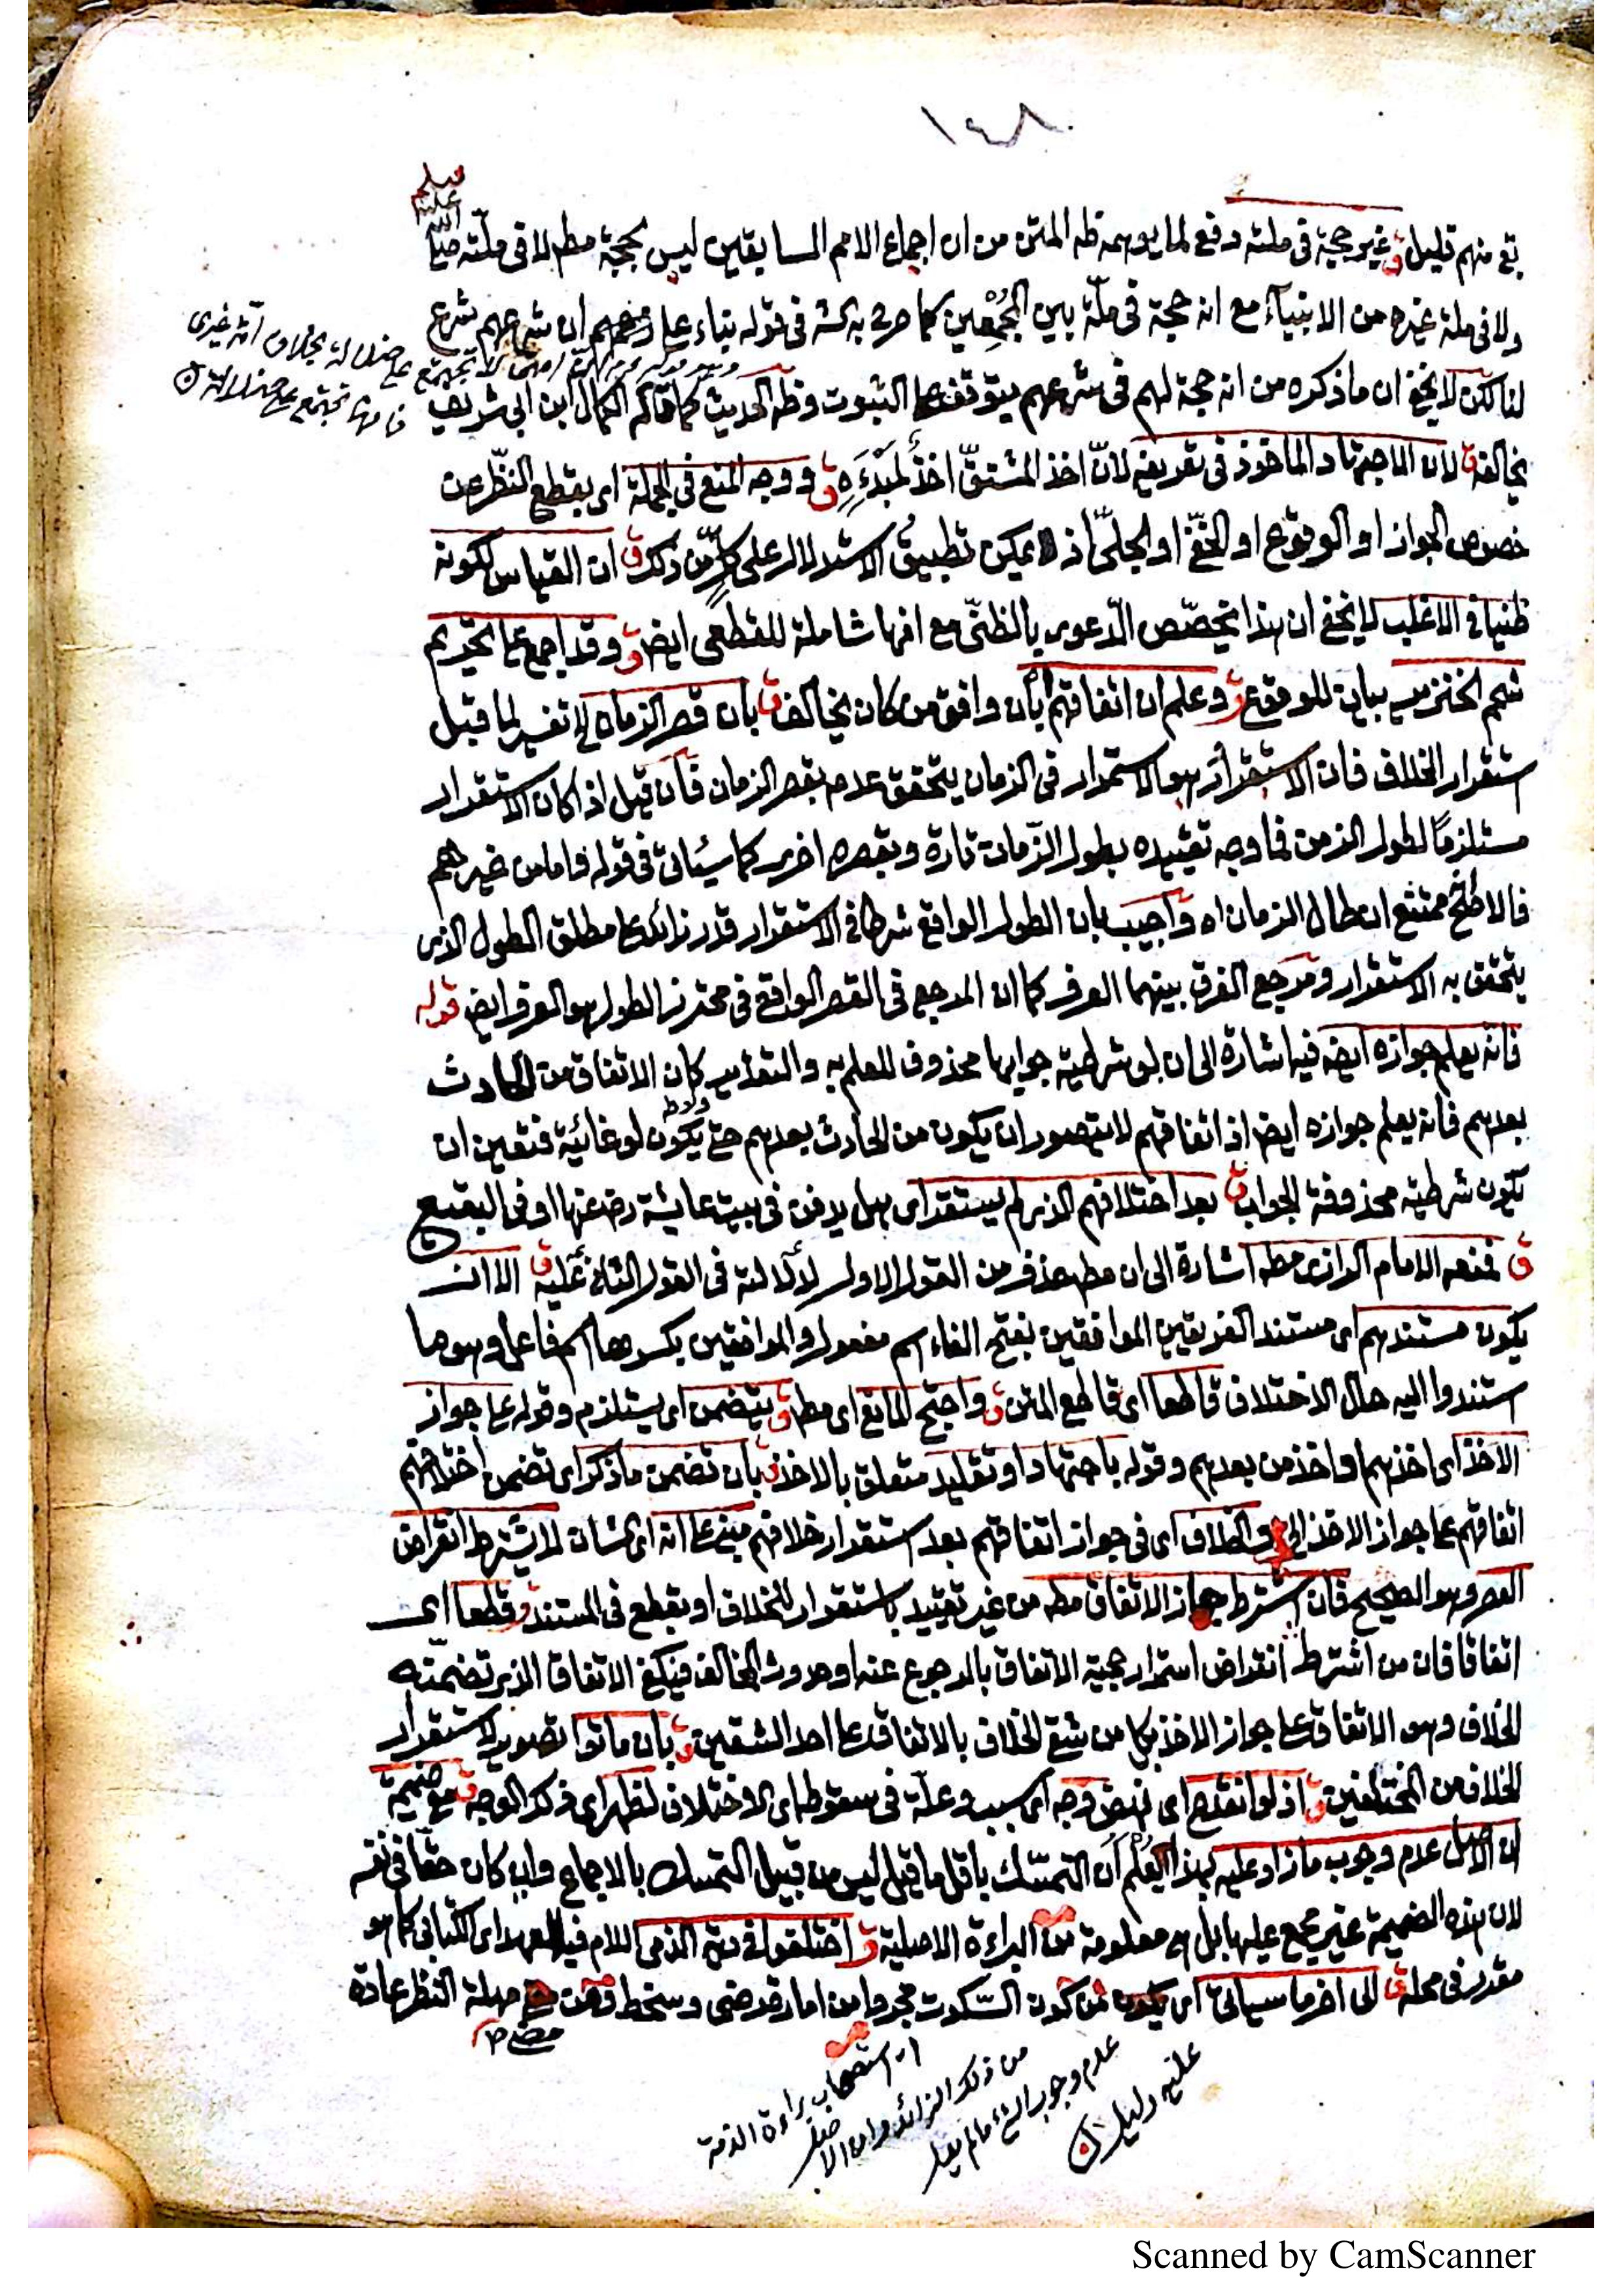 ١٤٨
صلى
الله عليه وسلم
بق منهم قليل ق غير حجة فى ملته دفع لما يوهمه ظه المتن من ان اجماع الامم السابقين ليس بحجة مطه لا فى ملته
ولا فى ملة غيره من الانبياء مع انه حجة فى ملة بين المجمعين كما صرح به الش فى قوله بناء على ان شرعهم شرع
لنا لكن لا يخفى ان ما ذكره من انه حجة لهم فى شرعهم يتوقف على الثبوت وظه الحديث كما قاله الكمال ابن ابى شريف
يخالفه ق لان الاجتهاد الماخوذ فى تعريفه لانّ اخذ المشتقّ اخذ لمبدءه ق ووجه المنع فى الجملة اى بقطع النظر عن
خصوص الجواز او الوقوع او الخفىّ او الجلىّ اذ لا يمكن تطبيق الاستدلال على كل من ذلك ق ان القياس لكونه
ظنيا فى الاغلب لا يخفى ان هذا تخصّص الدّعوى بالظنّى مع انها شاملة للقطعى ايض ق وقد اجمع على تحريم
شحم الخنزير بيان للوقوع ق وعلم ان اتفاقهم بأن وافق من كان يخالف ق بان قصر الزمان تفسير لما قبل
استقرار الخلاف فان الاستقرار هو الاستمرار فى الزمان يتحقق عدمه بقصر الزمان فان قيل اذا كان الاستقرار
مستلزمًا لطول الزمن فما وجه تقييده بطول الزّمان تارة وبقصره اخرى كما سيئاتى فى قوله فاما من غيرهم
فالاصح ممتنع ان طال الزمان اه واجيب بان الطول الواقع شرطا فى الاستقرار قدر زائد على مطلق الطول الذى
يتحقق به الاستقرار ومرجع الفرق بينهما العرف كما ان المرجع فى القصر الواقع فى محترز الطول هو العرف ايض قوله
فانه يعلم جوازه ايضه فيه اشارة الى ان لو شرطية جوابها محذوف للعلم به والتقدير كان الاتفاق من الحادث
بعدهم فانه يعلم جوازه ايض اذ اتفاقهم لا يتصور ان يكون من الحادث بعدهم حتى يكون لو غائية فتعين ان
يكون شرطية محذوفة الجواب ق بعد اختلافهم الذى لم يستقر اى هل يدفن فى بيت عايشة رضه عنها او فى البقيع
ق فمنعه الامام الرازى مطه اشارة الى ان مطه حذف من القول الاول لدلالته فى القول الثانى عليه ق الا ان
يكون مستندهم اى مستند الفريقين الموافقين بفتح الفاء اسم مفعول والموافقين بكسرها اسم فاعل وهو ما
استندوا اليه حال الاختلاف قاطعا اى قاطع المتن ق واحتج المانع اى مطه ق يتضمن اى يستلزم وقوله على جواز
الاخذ اى اخذهم واخذ من بعدهم وقوله باجتهاد او تقليد متعلق بالاخذ ق بان تضمن ما ذكر اى تضمن اختلافهم
اتفاقهم على جواز الاخذ الخ ق والخلاف اى فى جواز اتفاقهم بعد استقرار خلافهم مبنى على انه اى الشان لا يشترط انقراض
العصر وهو الصحيح فان اشترط جاز الاتفاق مطه من غير تقييد باستقرار الخلاف او بقطع فى المستند ق قطعا اى
اتفاقا فان من اشترط انقراض استمرار حجية الاتفاق بالرجوع عنه او حدوث المخالف فيكفى الاتفاق الذى تضمنه
الخلاف وهو الاتفاق على جواز الاخذ بكل من شقى الخلاف بالاتفاق على احد الشقين ق بان ماتوا تصوير لاستقرار
الخلاف من المختلفين ق اذ لو انقدح اى نهض وجه اى سبب وعلّة فى سقوطه اى الاختلاف لظهر اى ذكر الوجه ق مع ضميمة
ان الاصل عدم وجوب ما زاد عليه بهذا يعلم أن التمسّك باقل ما قيل ليس من قبيل التمسك بالاجماع وان كان حقا فى نفسه
لان هذه الضميمة غير مجمع عليها بل هى معلومة من البراءة الاصلية ق اختلفوا فى دية الذمى اللام فيه للعهد اى الكتابى كما هو
مقرر فى محله ق الى اخر ما سيأتى اى من كون السّكوت مجردا من امارة رضى وسخط مهلة النظر عادة
مضى
لا تجتمع على ضلالة بخلاف امة غيرى
فانها تجتمع على ضلالة
استصحاب براءة الذمة
من ذلك الزائد وان الاصل
عدم وجوب الشئ ما لم يقل
عليه دليل
Scanned by CamScanner